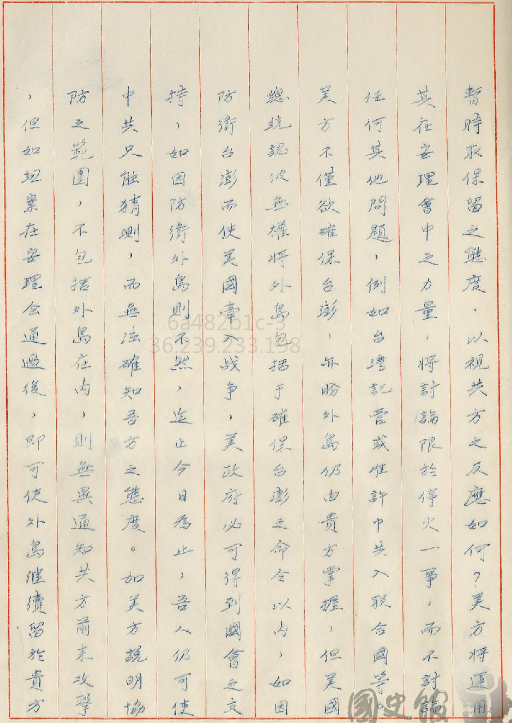 暫時取保留之態度,以視共方之反應如何?美方將運用
其在安理會中之力量,將討論限於停火一事,而不討論
任何其他問題,例如台灣託管或准許中共入聯合國等。
美方不僅欲確保台澎,亦盼外島仍由貴方掌握,但美國
總統認彼無權將外島包括于確保台澎之命令以內,如因
防衛台澎而使美國牽入戰爭,美政府必可得到國會之支
持,如因防衛外島則不然,迄止今日為止,吾人仍可使
中共只能猜測,而無法確知吾方之態度。如美方說明協
防之範圍,不包括外島在內,則無異通知共方前來攻擊
,但如現案在安理會通過後,即可使外島繼續留於貴方
6a48261c-3
36.239.233.158
國史館